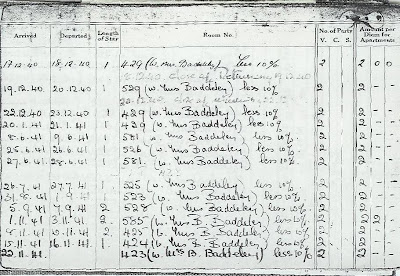 Arrived Departed Length of Stay Room No. No. of Party Amount per Diem for Apartments
V. C. S.
17.12.40 18.12.40 1 429 (w. Mrs Baddeley) less 10% 2 2 0 0
19.12.40 20.12.40 1 529 (w. Mrs Baddeley) less 10% 2 2
22.12.40 23.12.40 1 429 (w. Mrs Baddeley) less 10% 2 2
20.1.41 21.1.41 1 429 (w. Mrs Baddeley) less 10% 2 2
8.6.41 9.6.41 581 (w. Mrs Baddeley) less 10% 2 2
25.6.41 26.6.41 526 (w. Mrs Baddeley) less 10% 2 2
27.6.41 28.6.41 581 (w. Mrs Baddeley) less 10% 2 2
26.7.41 27.7.41 525 (w. Mrs Baddeley) less 10% 2 2
31.8.41 523 (w. Mrs Baddeley) less 10% 2 2
5.9.41 7.9.41 2 528 (w. Mrs Baddeley) less 10% 2 2
1.11.41 3.11.41 2 585 (w. Mrs B. Baddeley) less 10% 2 2 12
8.11.41 10.11.41 2 425 (w. Mrs B. Baddeley) less 10% 2 2
15.11.41 16.11.41 1 424 (w. Mrs B. Baddeley) less 10% 2 2
22.11.41 423 (w. Mrs B. Baddeley) less 10% 2 2